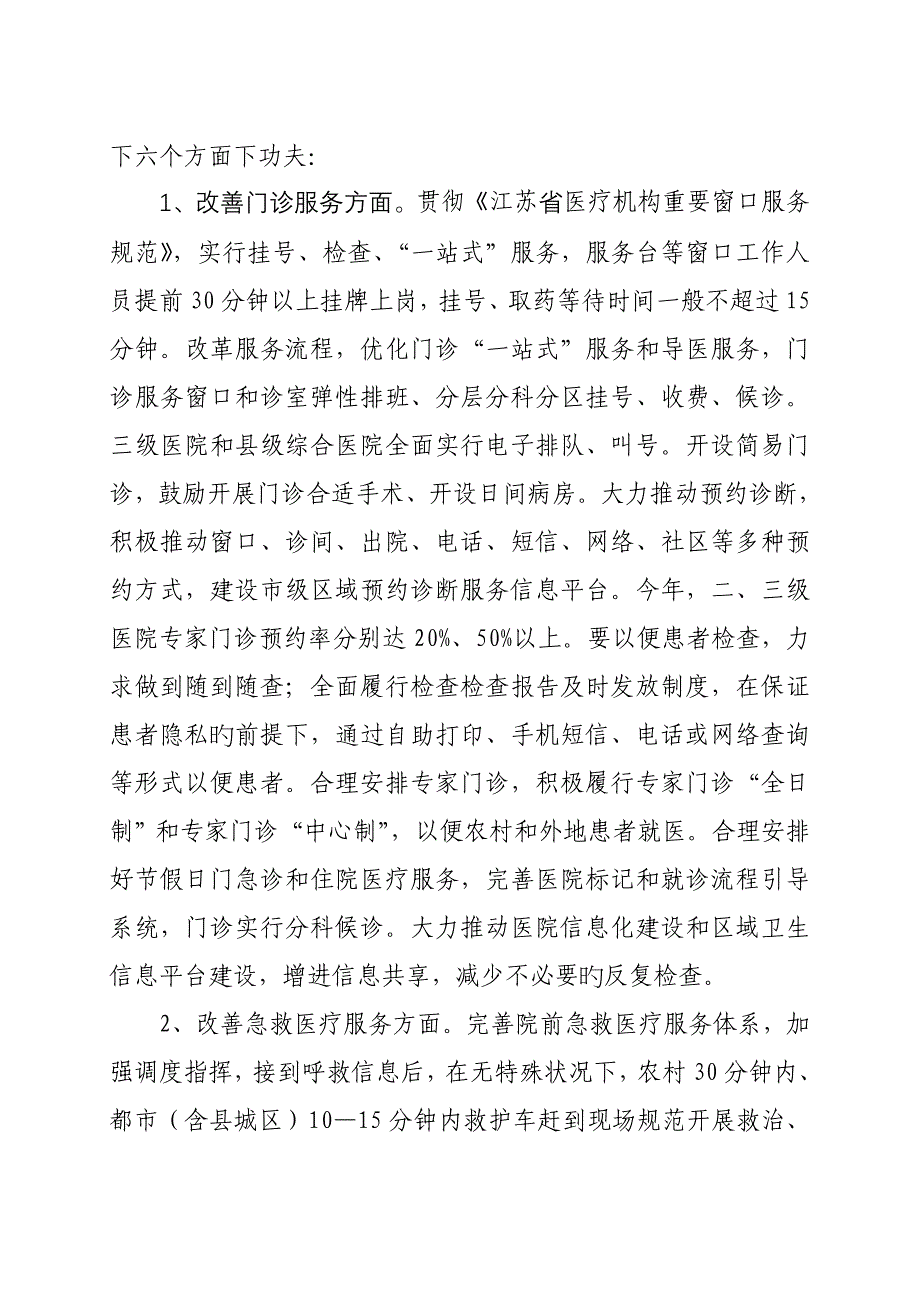 下六个方面下功夫：
1、改善门诊服务方面。贯彻《江苏省医疗机构重要窗口服务
规范》，实行挂号、检查、“一站式”服务，服务台等窗口工作人
员提前 30 分钟以上挂牌上岗，挂号、取药等待时间一般不超过 15
分钟。改革服务流程，优化门诊“一站式”服务和导医服务，门
诊服务窗口和诊室弹性排班、分层分科分区挂号、收费、候诊。
三级医院和县级综合医院全面实行电子排队、叫号。开设简易门
诊，鼓励开展门诊合适手术、开设日间病房。大力推动预约诊断，
积极推动窗口、诊间、出院、电话、短信、网络、社区等多种预
约方式，建设市级区域预约诊断服务信息平台。今年，二、三级
医院专家门诊预约率分别达 20%、50%以上。要以便患者检查，力
求做到随到随查；全面履行检查检查报告及时发放制度，在保证
患者隐私旳前提下，通过自助打印、手机短信、电话或网络查询
等形式以便患者。合理安排专家门诊，积极履行专家门诊“全日
制”和专家门诊“中心制”，以便农村和外地患者就医。合理安排
好节假日门急诊和住院医疗服务，完善医院标记和就诊流程引导
系统，门诊实行分科候诊。大力推动医院信息化建设和区域卫生
信息平台建设，增进信息共享，减少不必要旳反复检查。
2、改善急救医疗服务方面。完善院前急救医疗服务体系，加
强调度指挥，接到呼救信息后，在无特殊状况下，农村 30 分钟内、
都市（含县城区）10—15 分钟内救护车赶到现场规范开展救治、